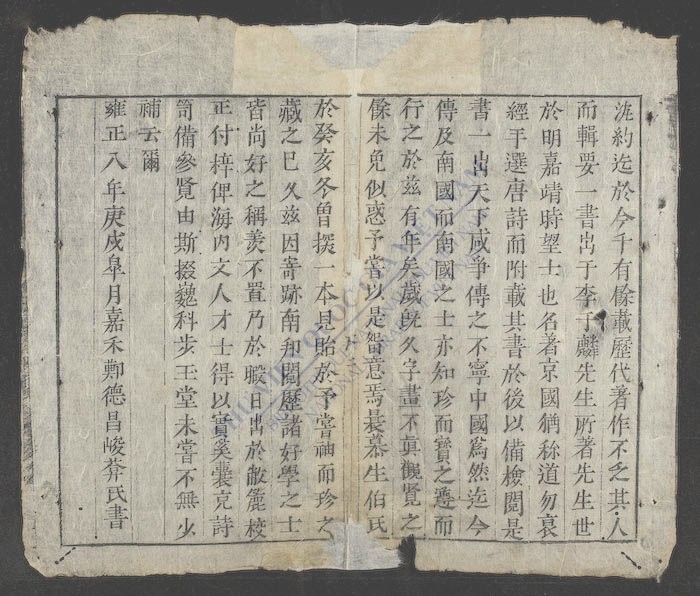 沈約迄於今千有餘載歷代著作不乏其人
而輯要一書出于李于麟先生所著先生世
於明嘉靖時望士也名著京國猶称道勿衰
經平選唐詩而附載其書於後以備檢閱是
書一出天下咸爭傳之不寧中國為然迄今
傳及南國而南國之士亦知珍而寶之遵而
行之於兹有年矣歲旣久字畫不眞觀覽之
餘未免似惑予嘗以是留意焉曩慕生伯氏
於癸亥冬曾撰一本見貽於予嘗袖而珍之
藏之已久兹因寄跡南邦閱歷諸好學之士
皆尚好之稱羨不置乃於暇日出於敝簏校
正付梓俾海內文人才士得以實奚囊克詩
笥備參覽由斯掇巍科步玉堂未嘗不無少
補云爾
雍正八年庚戌皋月嘉禾鄭德昌峻莽氏書